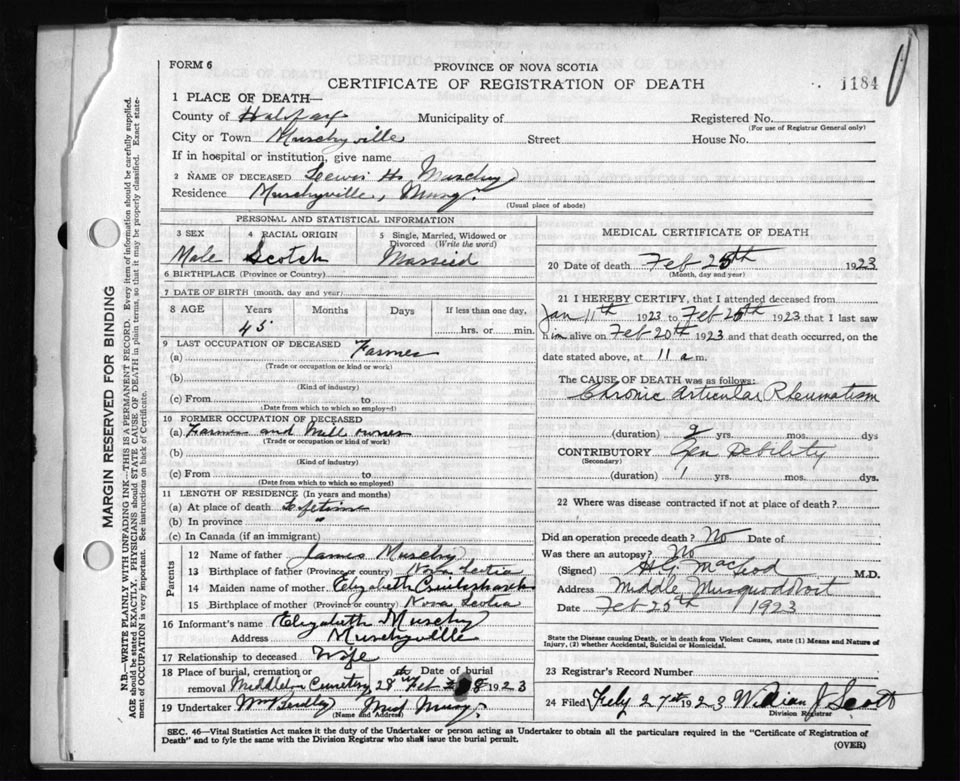 FORM 6
PROVINCE OF NOVA SCOTIA
CERTIFICATE OF REGISTRATION OF DEATH
1184
1 PLACE OF DEATH—
County of Halifax Municipality of Registered No.
(For use of Registrar General only)
City or Town Murchyville Street House No.
If in hospital or institution, give name
2 NAME OF DECEASED Lewis H. Murchy
Residence Murchyville, Musq.
(Usual place of abode)
MARGIN RESERVED FOR BINDING
N.B.—WRITE PLAINLY WITH UNFADING INK—THIS IS A PERMANENT RECORD. Every item of information should be carefully supplied.
AGE should be stated EXACTLY. PHYSICIANS should STATE CAUSE OF DEATH in plain terms, so that it may be properly classified. Exact state-
ment of OCCUPATION is very important. See instructions on back of Certificate.
PERSONAL AND STATISTICAL INFORMATION
3 SEX
Male
4 RACIAL ORIGIN
Scotch
5 Single, Married, Widowed or
Divorced (Write the word)
Married
6 BIRTHPLACE (Province or Country)
7 DATE OF BIRTH (month, day and year)
8 AGE Years Months Days If less than one day,
45 hrs. or min.
9 LAST OCCUPATION OF DECEASED
(a) Farmer
(Trade or occupation or kind or work)
(b)
(Kind of industry)
(c) From to
(Date from which to which so employed)
10 FORMER OCCUPATION OF DECEASED
(a) Farmer and Mill owner
(Trade or occupation or kind of work)
(b)
(Kind of industry)
(c) From to
(Date from which to which so employed)
11 LENGTH OF RESIDENCE (In years and months)
(a) At place of death Lifetime
(b) In province "
(c) In Canada (if an immigrant)
Parents
12 Name of father James Murchy
13 Birthplace of father (Province or country) Nova Scotia
14 Maiden name of mother Elizabeth
15 Birthplace of mother (Province or country) Nova Scotia
16 Informant's name Elizabeth Murchy
Address Murchyville
17 Relationship to deceased Wife
18 Place of burial, cremation or Date of burial
removal Middle Cemetery 28th Feb 1923
19 Undertaker Mid Musq.
(Name and Address)
MEDICAL CERTIFICATE OF DEATH
20 Date of death Feb 25th 1923
(Month, day and year)
21 I HEREBY CERTIFY, that I attended deceased from
Jan 11th 1923 to Feb 25th 1923 that I last saw
him alive on Feb 20th 1923 and that death occurred, on the
date stated above, at 11 a m.
The CAUSE OF DEATH was as follows:
Chronic Articular Rheumatism
(duration) 9 yrs. mos. dys
CONTRIBUTORY Gen Debility
(Secondary)
(duration) 1 yrs. mos. dys.
22 Where was disease contracted if not at place of death?
Did an operation precede death? No Date of
Was there an autopsy? No
(Signed) MacLeod M.D.
Address Middle Musquodoboit
Date Feb 25th 1923
State the Disease causing Death, or in death from Violent Causes, state (1) Means and Nature of
Injury, (2) whether Accidental, Suicidal or Homicidal.
23 Registrar's Record Number
24 Filed Feby 27th 1923 William J Scott
Division Registrar
SEC. 46—Vital Statistics Act makes it the duty of the Undertaker or person acting as Undertaker to obtain all the particulars required in the "Certificate of Registration of
Death" and to fyle the same with the Division Registrar who shall issue the burial permit.
(OVER)